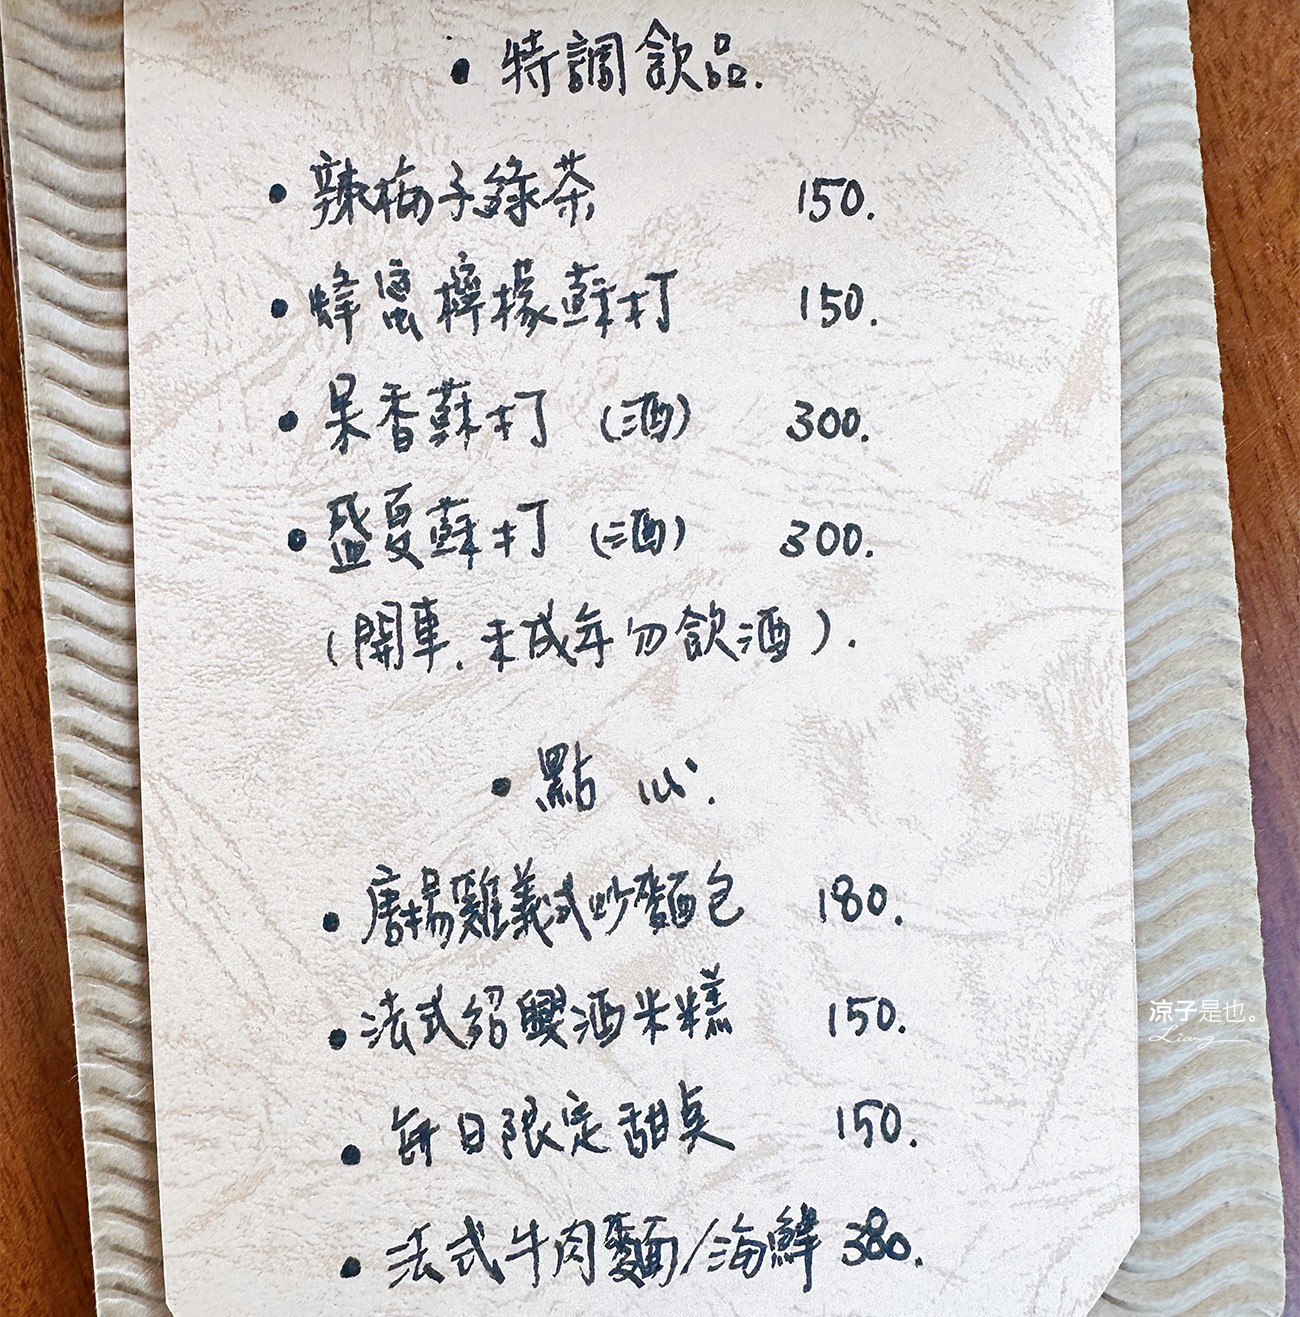 • 特調飲品.
• 辣梅子綠茶 150.
• 蜂蜜檸檬蘇打 150.
• 果香蘇打 (酒) 300.
• 盛夏蘇打 (酒) 300.
(開車.未成年勿飲酒).
• 點心.
• 唐揚雞義式炒麵包 180.
• 法式紹興酒米糕 150.
涼子是也。
Liang
• 每日限定甜点 150.
• 法式牛肉麵/海鮮 380.